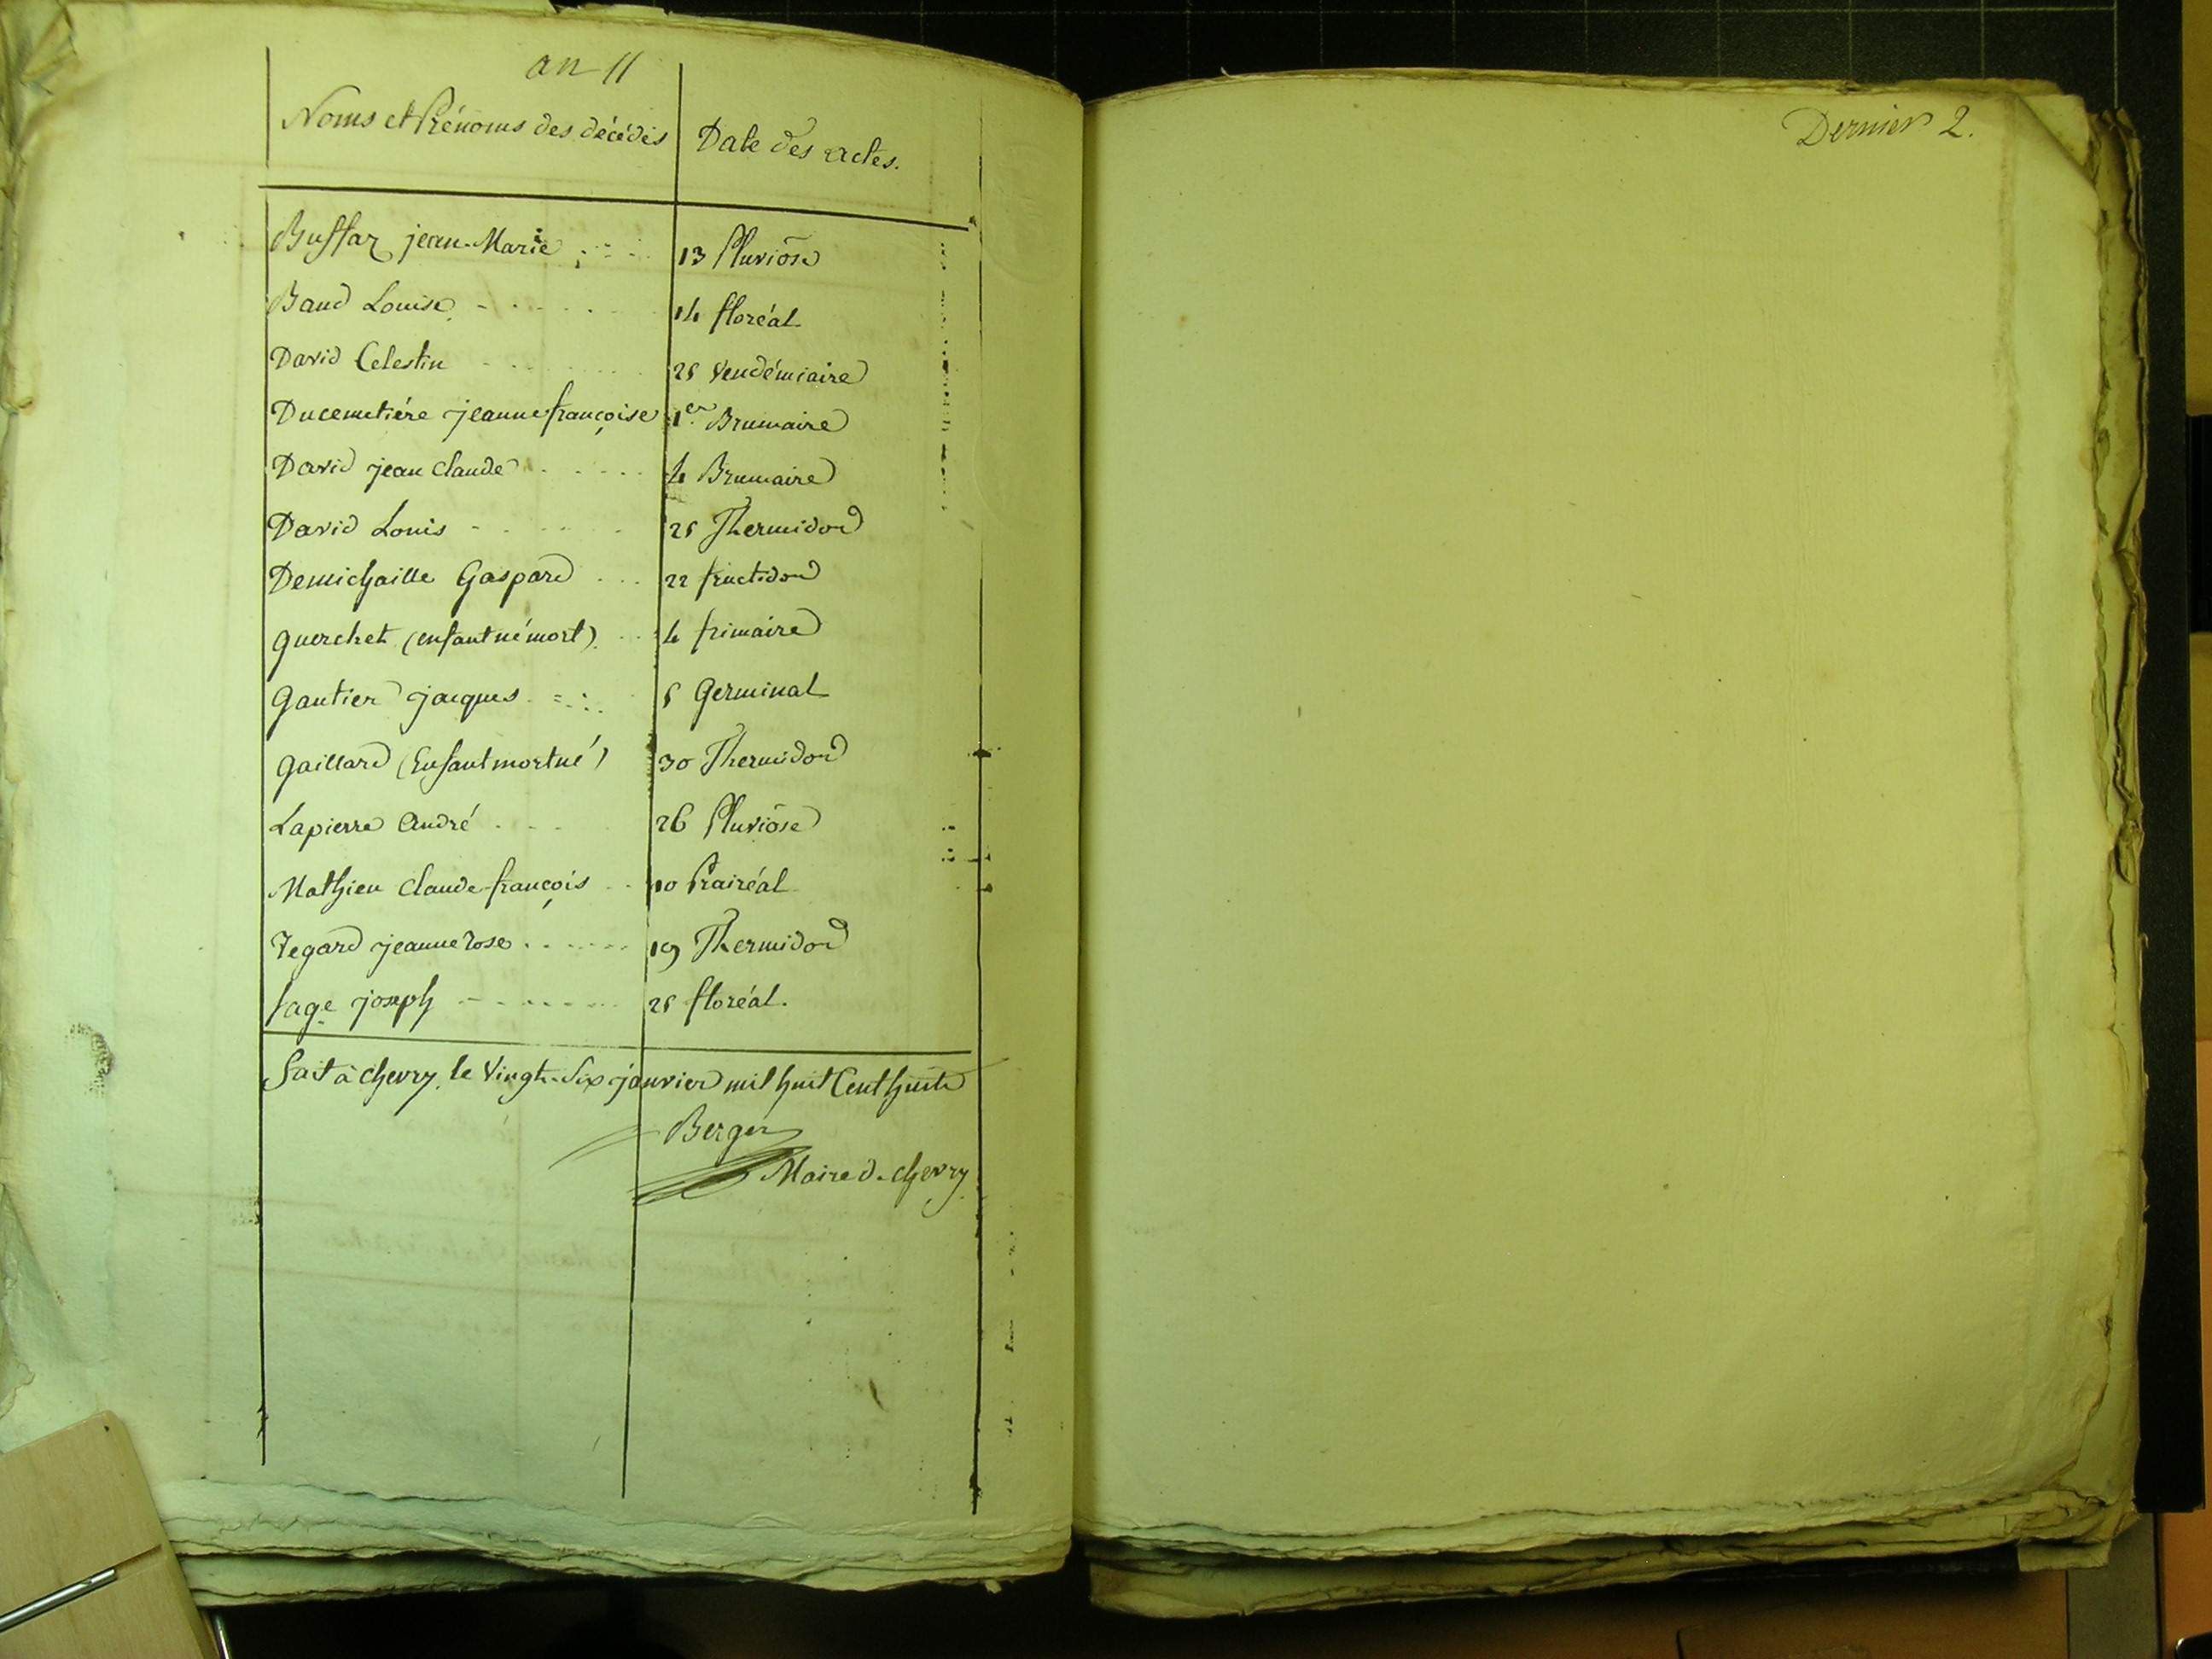 an 11
Noms et Prénoms des décédés Date des actes.
Buffaz jean-Marie 13 Pluviôse
Baud Louise 14 floréal
David Celestin 25 Vendémiaire
Ducemetiére jeanne françoise 1er Brumaire
David jean claude 4 Brumaire
David Louis 25 Thermidor
Demichaille Gaspard 22 fructidor
Guerchet (enfant né mort) 4 frimaire
Gautier jacques 5 Germinal
Gaillard (Enfant mort né) 30 Thermidor
Lapierre André 26 Pluviôse
Mathieu Claude-françois 10 Prairéal
Regard jeanne rose 19 Thermidor
Sage joseph 25 floréal.
Fait à chevry, le Vingt-Six janvier mil huit Cent huit
Berger
Maire d. chevry
Dernier 2.